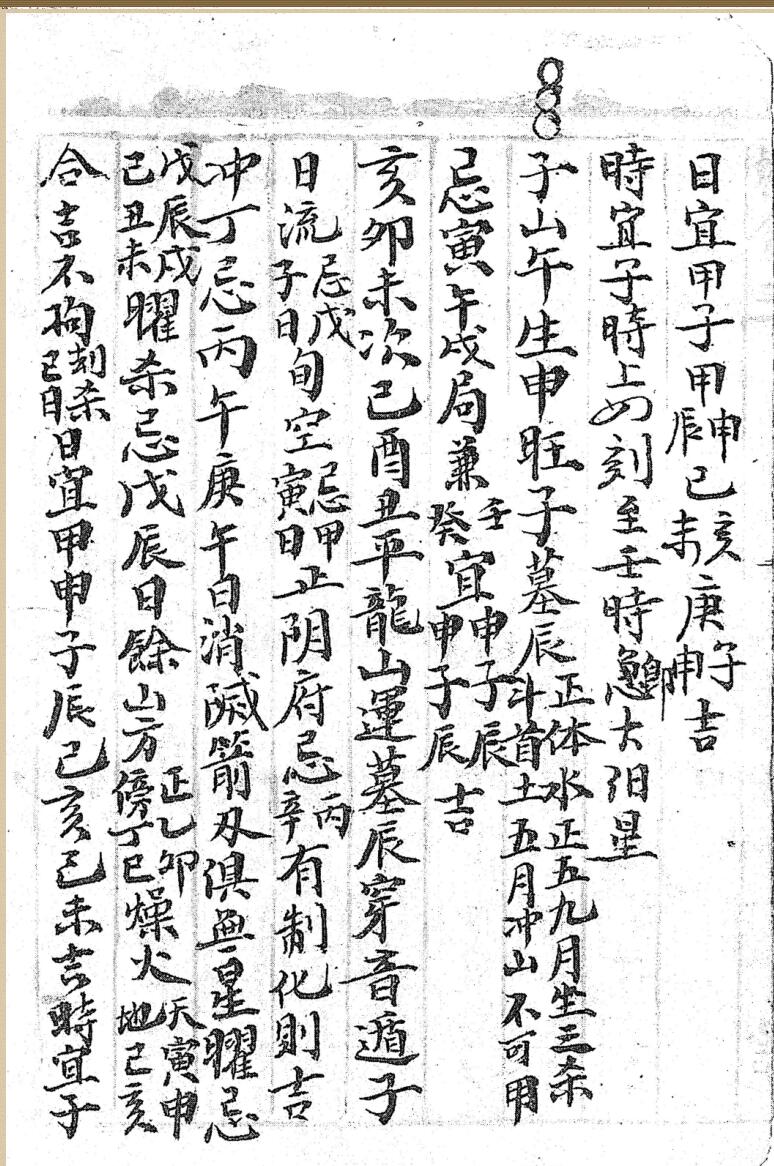 日宜甲子甲申辰己亥未庚子申吉
時宜子時上四刻至壬時卽太阳星
子山午生申旺子墓辰正体水正五九月坐三杀斗首土五月冲山不可用
忌寅午戌局兼壬癸宜申子辰申子辰吉
亥卯未次己酉丑平龍山運墓辰穿音遁子
日流忌戊子日旬空忌甲寅日正阴府忌丙辛有制化則吉
冲丁忌丙午庚午日消滅箭刃俱無星曜忌
戊辰戌己丑未曜杀忌戊辰日餘山方正乙卯傍丁巳燥火天寅申地己亥
合吉不拘刻杀己日日宜甲申子辰己亥己未吉時宜子